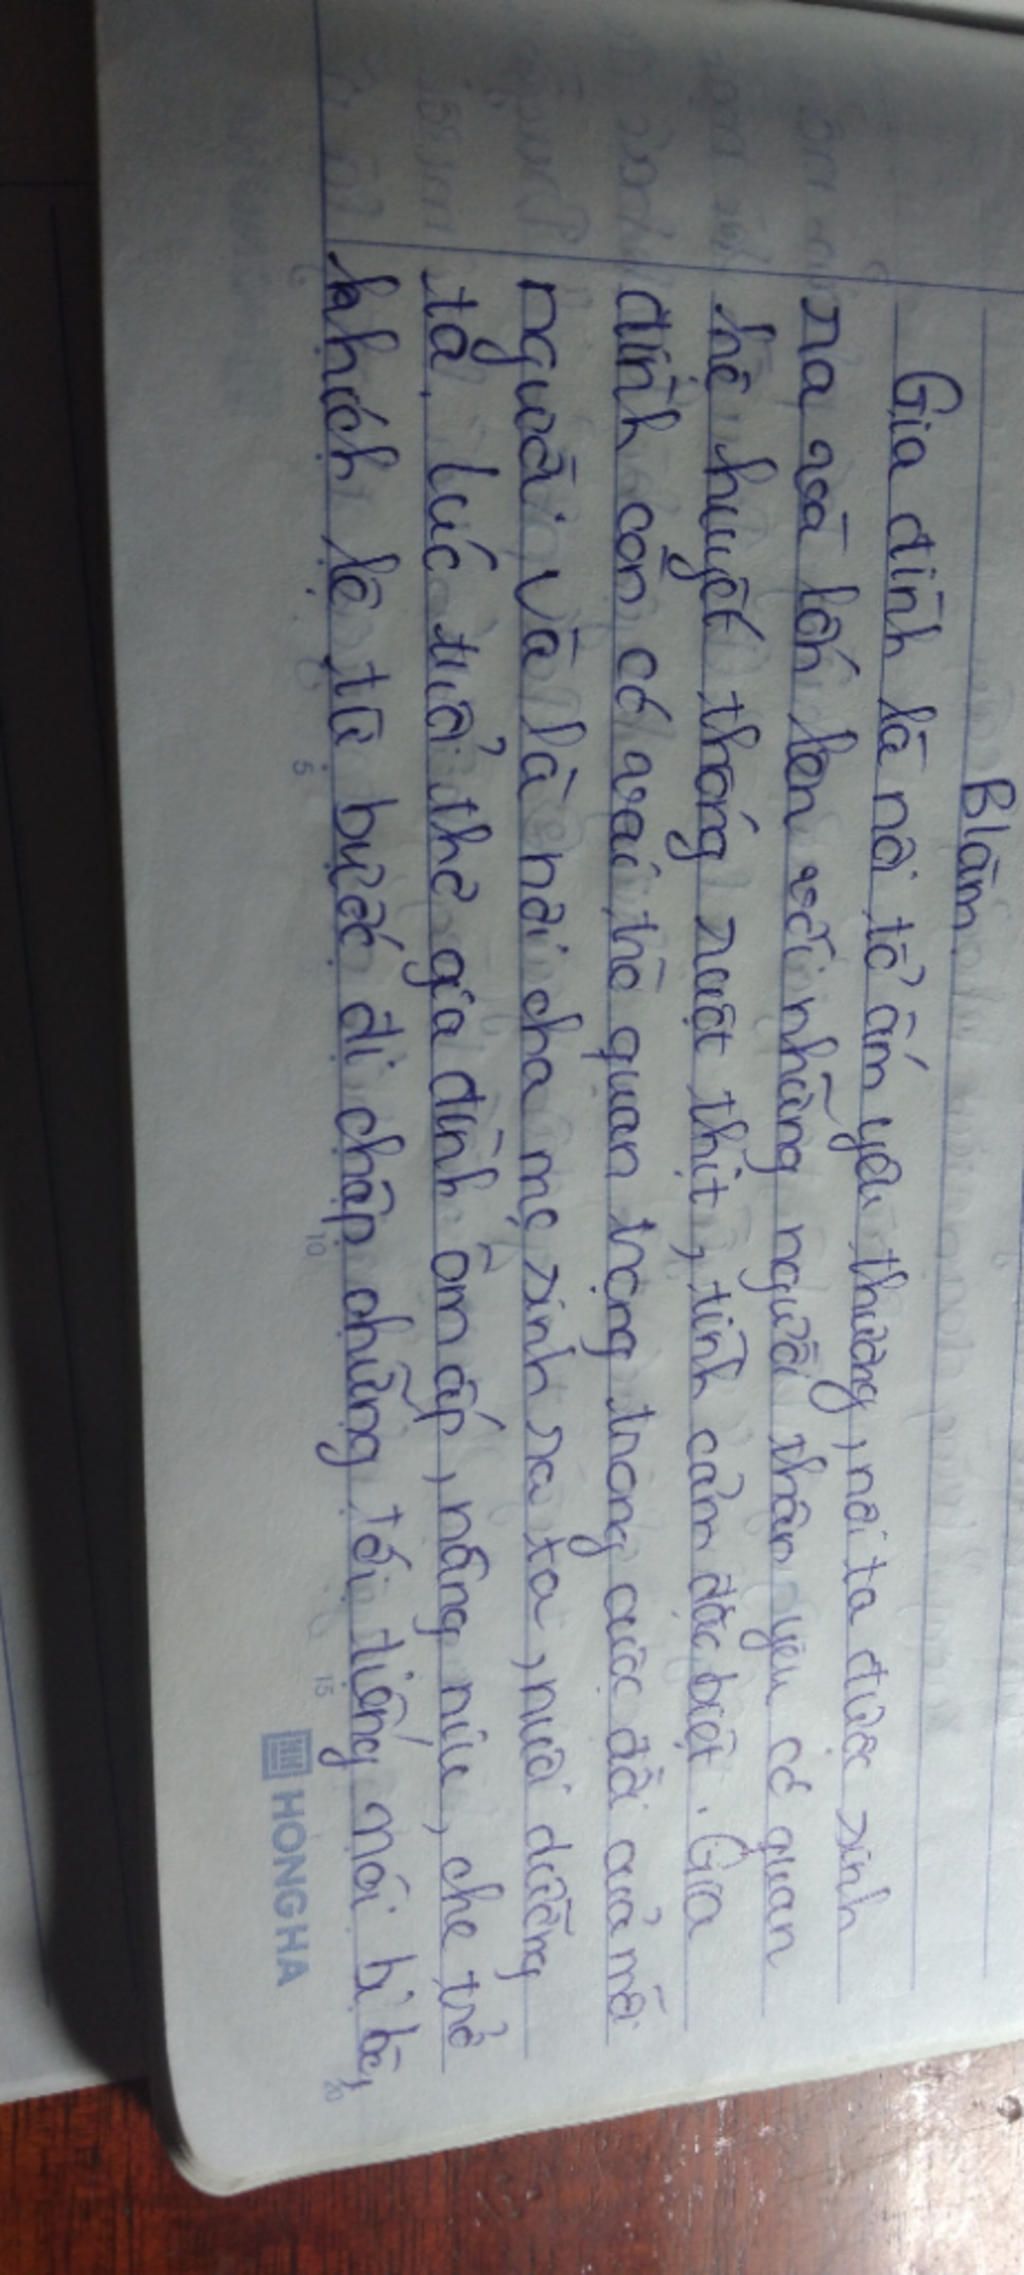 Blàm
Gia đình là nơi tổ ấm yêu thương, nơi ta được sinh
ra và lớn lên với những người thân yêu có quan
hê huyết thống ruột thịt, tình cảm đặc biệt. Gia
đình còn có vai thò quan trọng trong cuộc đời của mỗi
người. Và là nơi cha mẹ sinh ra ta, nuôi dưỡng
ta. lúc tuổi thơ gia đình ôm ấp, nâng niu, che trở
khích lệ từ bước đi chập chững tới tiếng nói bi bô,
5 10 15 20
HONG HA